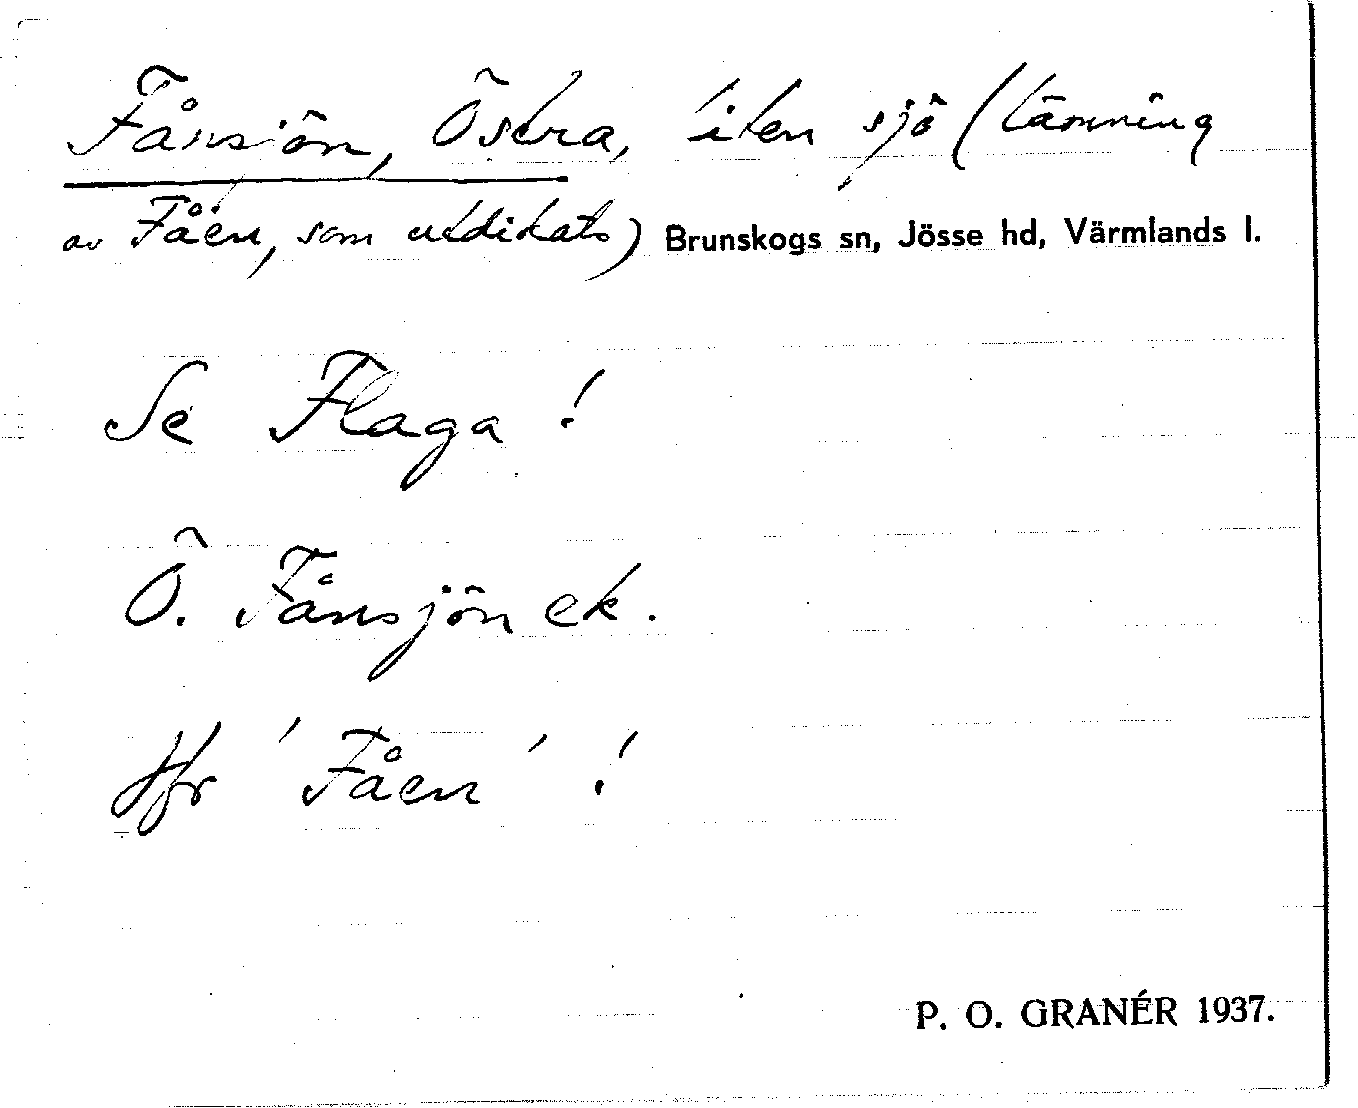 Fånsjön, Östra, liten sjö (lämning
av Fåen, som utdikats) Brunskogs sn, Jösse hd, Värmlands l.
Se Flaga!
Ö. Fånsjön ek.
Jfr 'Fåen'!
P. O. GRANÉR 1937.